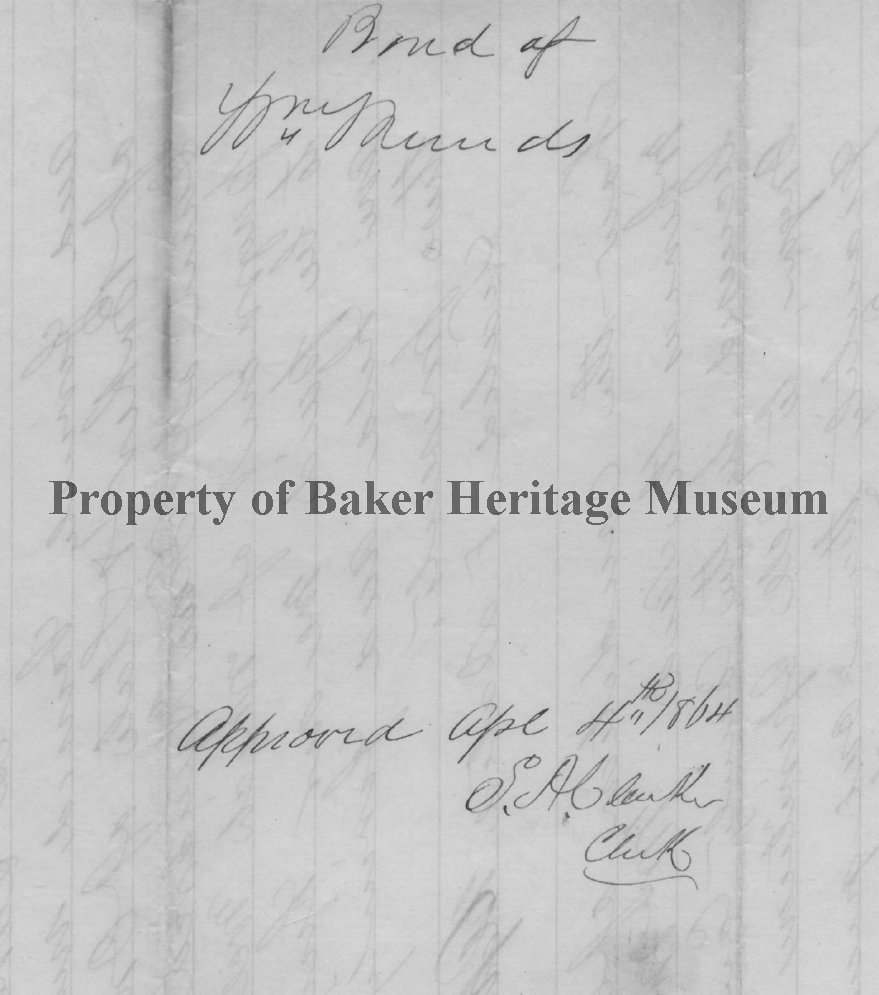 Bond of
Wm
Property of Baker Heritage Museum
Approved Apl 4th 1864
S. A. Clarke
Clerk